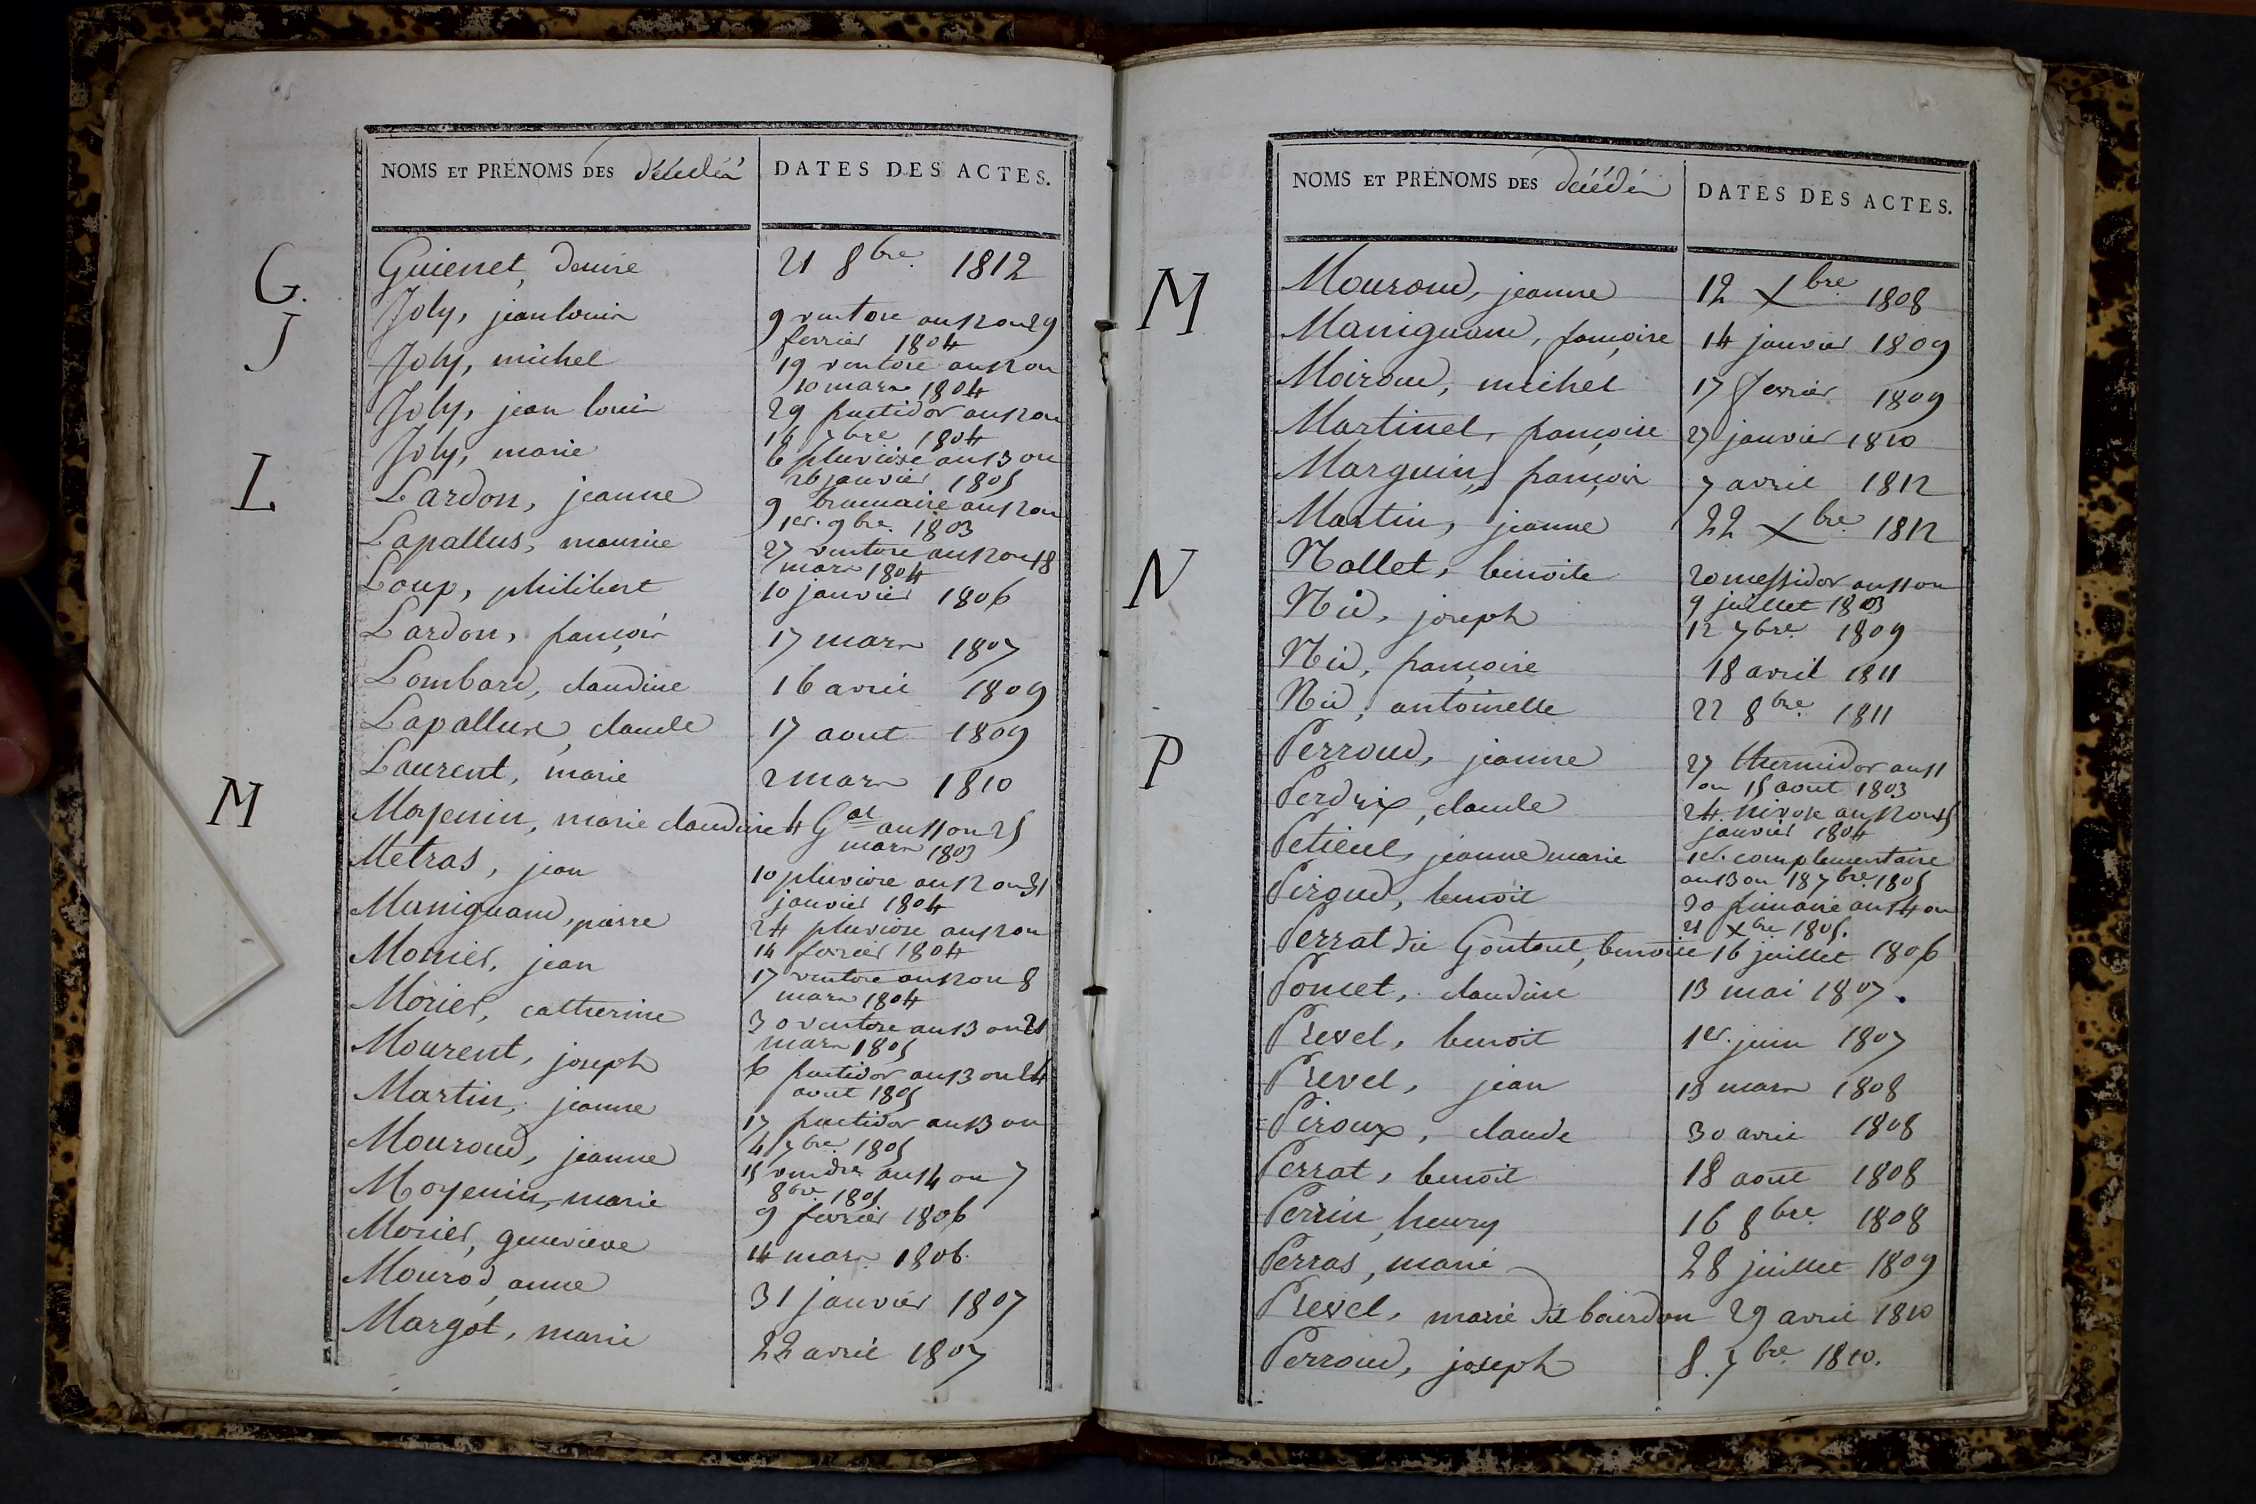 NOMS ET PRÉNOMS DES décédés DATES DES ACTES.
G. Guienet, denise 21 8bre 1812
J Joly, jean louis 9 ventose an 12 ou 29
fevrier 1804
Joly, michel 19 ventose an 12 ou
10 mars 1804
Joly, jean louis 29 fructidor an 12 ou
16 7bre 1804
Joly, marie 6 pluviose an 13 ou
26 janvier 1805
L Lardon, jeanne 9 brumaire an 12 ou
1er. 9bre. 1803
Lapallus, maurice 27 ventose an 12 ou 18
mars 1804
Loup, philibert 10 janvier 1806
Lardon, françois 17 mars 1807
Lombard, claudine 16 avril 1809
Lapallus, claude 17 aout 1809
Laurent, marie 2 mars 1810
M Moyenin, marie claudine 4 Gal an 11 ou 25
mars 1803
Métras, jean 10 pluviose an 12 ou 31
janvier 1804
Maniguand, pierre 24 pluviose an 12 ou
14 fevrier 1804
Monier, jean 17 ventose an 12 ou 8
mars 1804
Morier, catherine 30 ventose an 13 ou 21
mars 1805
Mourent, joseph 6 fructidor an 13 ou 24
aout 1805
Martin, jeanne 17 fructidor an 13 ou
4 7bre 1805
Mouroud, jeanne 15 vendre an 14 ou 7
8bre 1805
Moyenin, marie 9 fevrier 1806
Morier, genevieve 14 mars 1806.
Mourod, anne 31 janvier 1807
Margot, marie 22 avril 1807
NOMS ET PRÉNOMS DES décédés DATES DES ACTES.
M Mouroud, jeanne 12 Xbre 1808
Maniguand, françoise 14 janvier 1809
Moiroud, michel 17 fevrier 1809
Martinet, françoise 27 janvier 1810
Marguin, françois 7 avril 1812
Martin, jeanne 22 Xbre 1812
N Nallet, benoite 20 messidor an 11 ou
9 juillet 1803
Nid, joseph 12 7bre 1809
Nid, françoise 18 avril 1811
Nid, antoinette 22 8bre 1811
P Perroud, jeanne 27 thermidor an 11
ou 15 aout 1803
Perdrix, claude 24 nivose an 12 ou 15
janvier 1804
Petieut, jeanne marie 1er. complementaire
an 13 ou 18 7bre 1805
Piroud, benoit 30 frimaire an 14 ou
21 Xbre 1805.
Perrat dit Gontout, benoite 16 juillet 1806
Poncet, claudine 13 mai 1807.
Prevel, benoit 1er. juin 1807
Prevel, jean 13 mars 1808
Piroux, claude 30 avril 1808
Perrat, benoit 18 aout 1808
Perrin, henry 16 8bre 1808
Perras, marie 28 juillet 1809
Prevel, marie dit bourdon 29 avril 1810
Perroud, joseph 8. 7bre 1810.